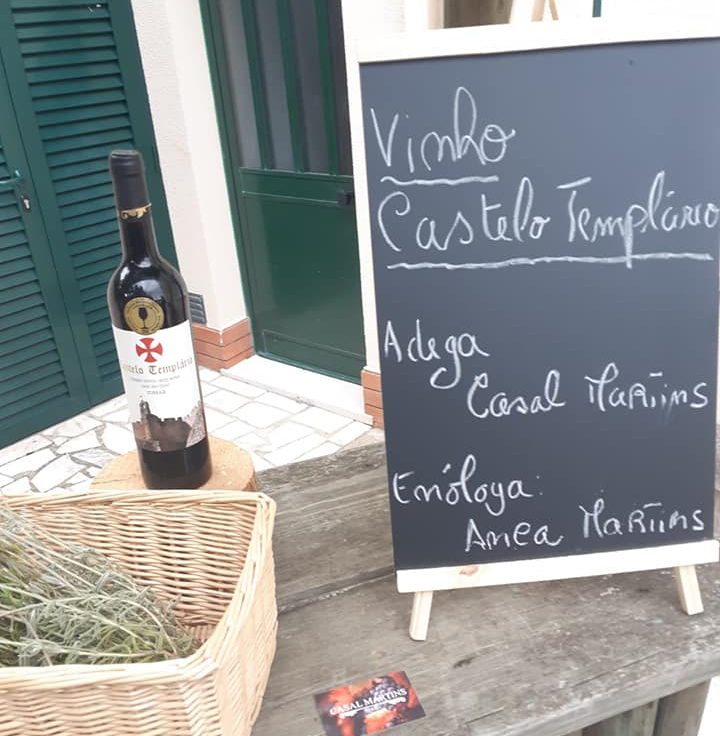 Vinho
Castelo Templário
Adega
Casal Martins
Enóloga:
Anea Martins
Castelo Templário
TOMAR
CASAL MARTINS